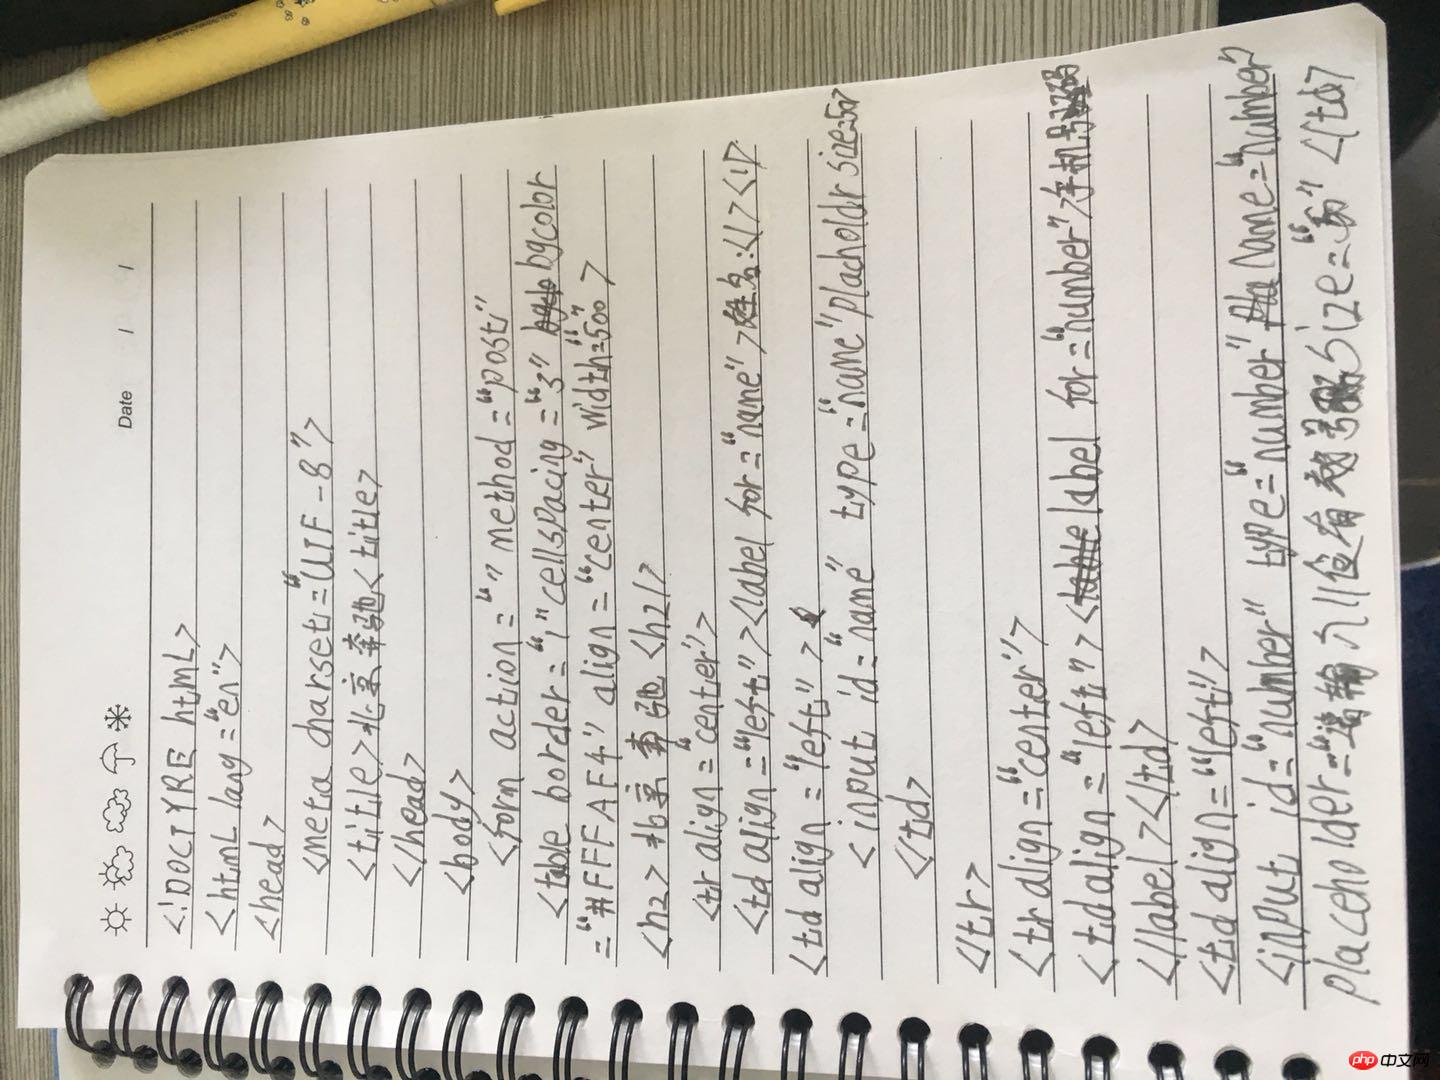 Date / /
<!DOCTYRE htmL>
<htmL lang="en">
<head>
<meta charset="UTF-8">
<title>北京奔驰<title>
</head>
<body>
<form action="" method="post"
<table border="1" cellspacing="3" bgcolor
="#FFFAF4" align="center" width="500">
<h2>北京奔驰<h2/>
<tr align="center">
<td align="left"><label for="name">姓名:</l></l>
<td align="left">
<input id="name" type="name" placholdr size=50>
</td>
</tr>
<tr align="center">
<td align="left"><label for="number">手机号码
</label></td>
<td align="left">
<input id="number" type="number" name="number"
placeholder="请输入 size="50" </td>
php 中文网